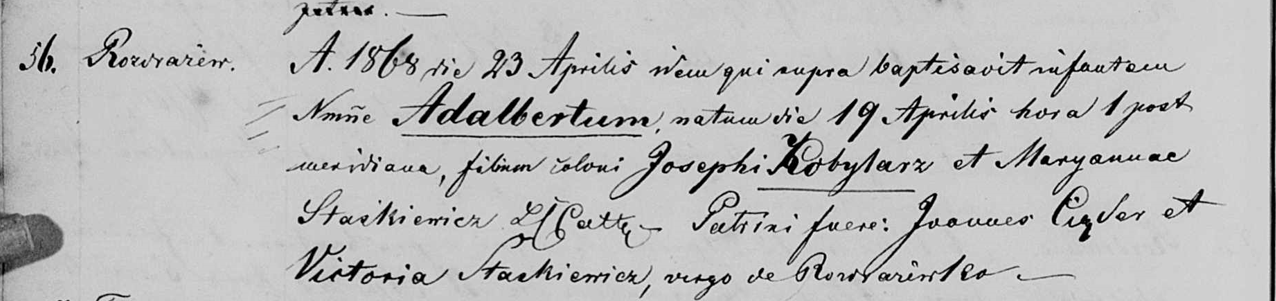 56. Rozdrażew. A. 1868 die 23 Aprilis idem qui supra baptisavit infantem
Nmñe Adalbertum, natum die 19 Aprilis hora 1 post
meridiana, filium coloni Josephi Kobylarz et Maryannae
Staśkiewicz LL Catt. – Patrini fuere: Joannes et
Victoria Staśkiewicz, virgo de Rozdrażewko –